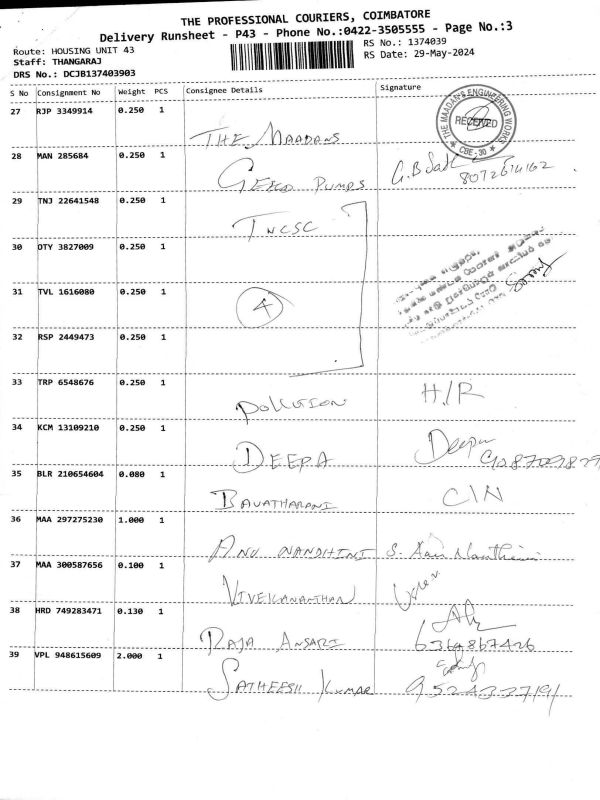 THE PROFESSIONAL COURIERS, COIMBATORE
Delivery Runsheet - P43 - Phone No.:0422-3505555 - Page No.:3
Route: HOUSING UNIT 43
RS No.: 1374039
Staff: THANGARAJ
RS Date: 29-May-2024
DRS No.: DCJB137403903
S No Consignment No Weight PCS Consignee Details Signature
27 RJP 3349914 0.250 1
THE MAADANS
THE MAADAN'S ENGINEERING WORKS
RECEIVED
CBE - 30
28 MAN 285684 0.250 1
GEEKO PUMPS
29 TNJ 22641548 0.250 1
TNCSC
30 OTY 3827009 0.250 1
31 TVL 1616080 0.250 1
4
32 RSP 2449473 0.250 1
33 TRP 6548676 0.250 1
POLLUTION H/R
34 KCM 13109210 0.250 1
DEEPA Deepa
35 BLR 210654604 0.080 1
BAVATHARANI C/N
36 MAA 297275230 1.000 1
ANU NANDHINI
37 MAA 300587656 0.100 1
VIVEKANANTHAN
38 HRD 749283471 0.130 1
RAJA ANSARI 6364867426
39 VPL 948615609 2.000 1
SATHEESH KUMAR